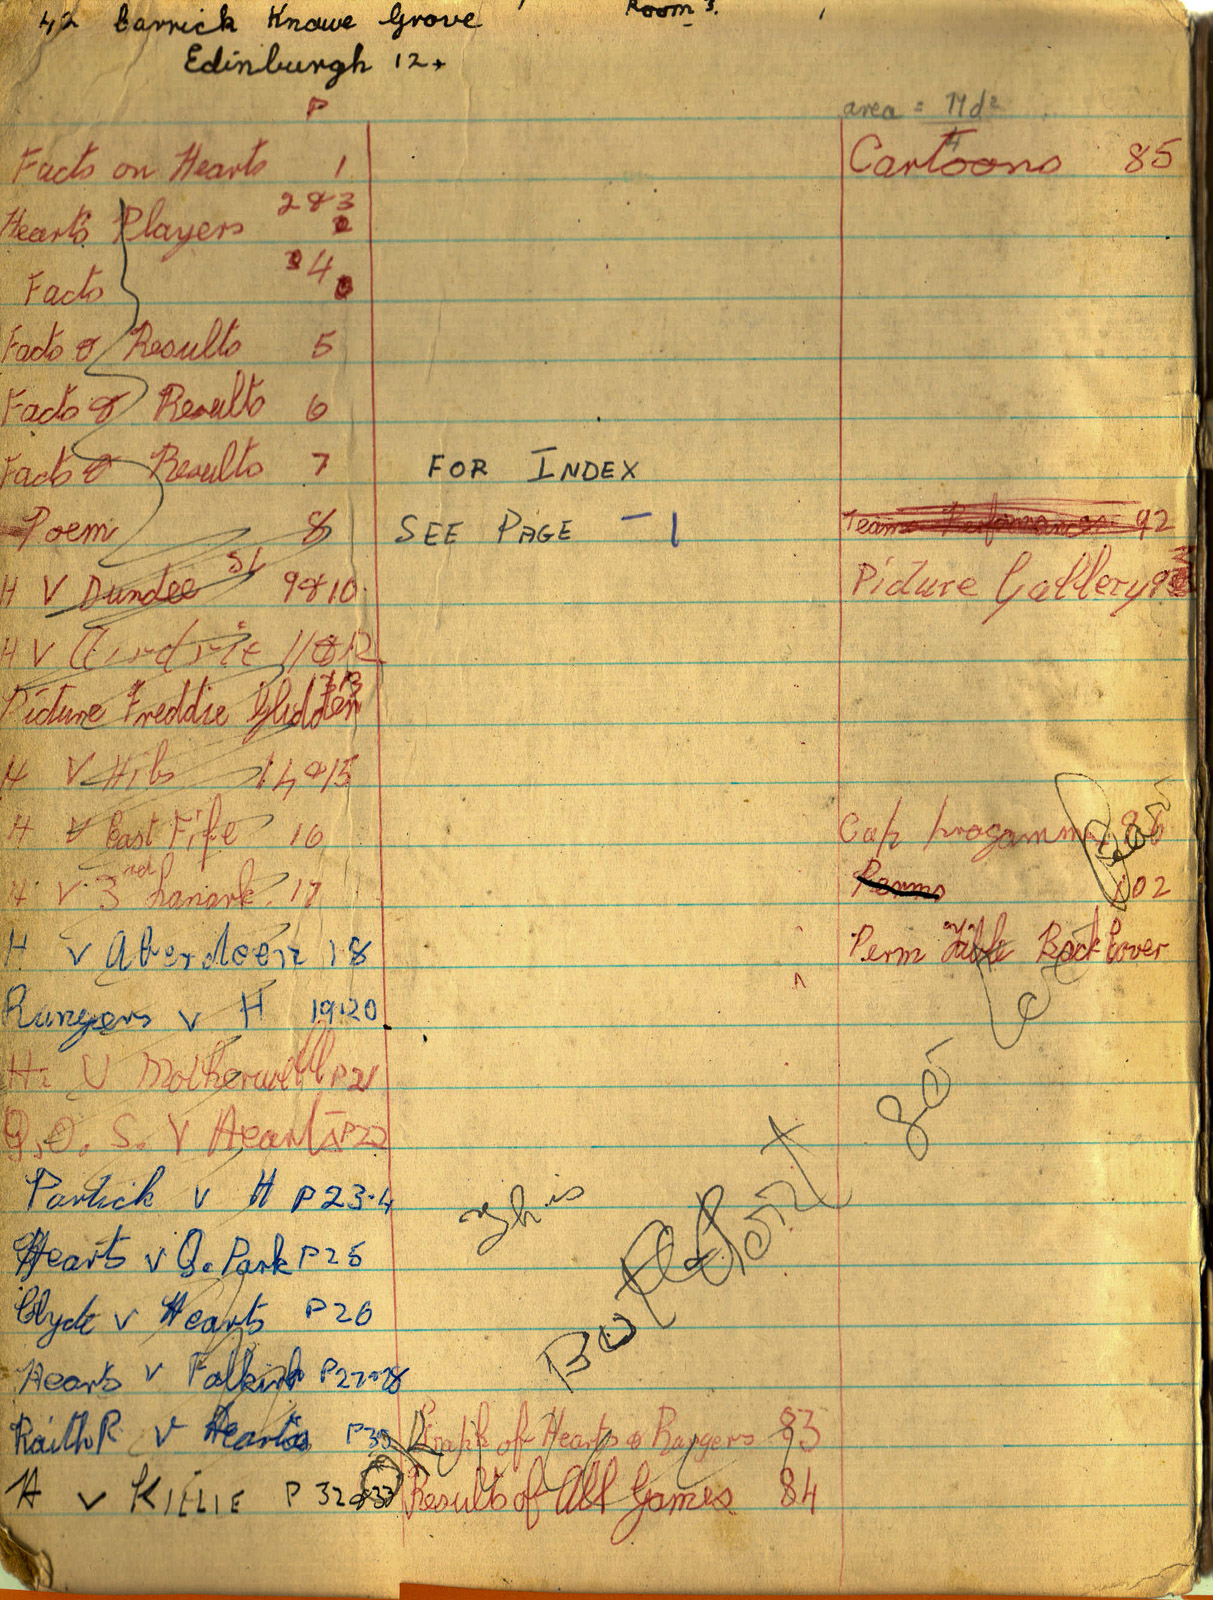 42 Carrick Knowe Grove
Room 3.
Edinburgh 12.
P
area = πd²
4
Facts on Hearts 1
Cartoons 85
Hearts Players 2 & 3
Facts 4
Facts & Results 5
Facts & Results 6
Facts & Results 7
FOR INDEX
Poem 8
SEE PAGE - 1
Teams Perfomances 92
H V Dundee 9 & 10
Picture Gallery
H V Airdrie 11 & 12
Picture Freddie Glidden 13
H V Hibs 14 & 15
H V East Fife 16
Cup progamme 86
H V 3rd Lanark 17
Perms 102
H v Aberdeen 18
Perm Table Back Cover
Rangers v H 19-20
H. V Motherwell P21
Q.O.S. V Hearts P22
Partick v H P23-4
This
Hearts v Q. Park P25
Clyde v Hearts P26
Hearts v Falkirk P27-28
Raith R v Hearts
Graph of Hearts & Rangers 83
H v KILLIE P 32 & 33
Results of All Games 84